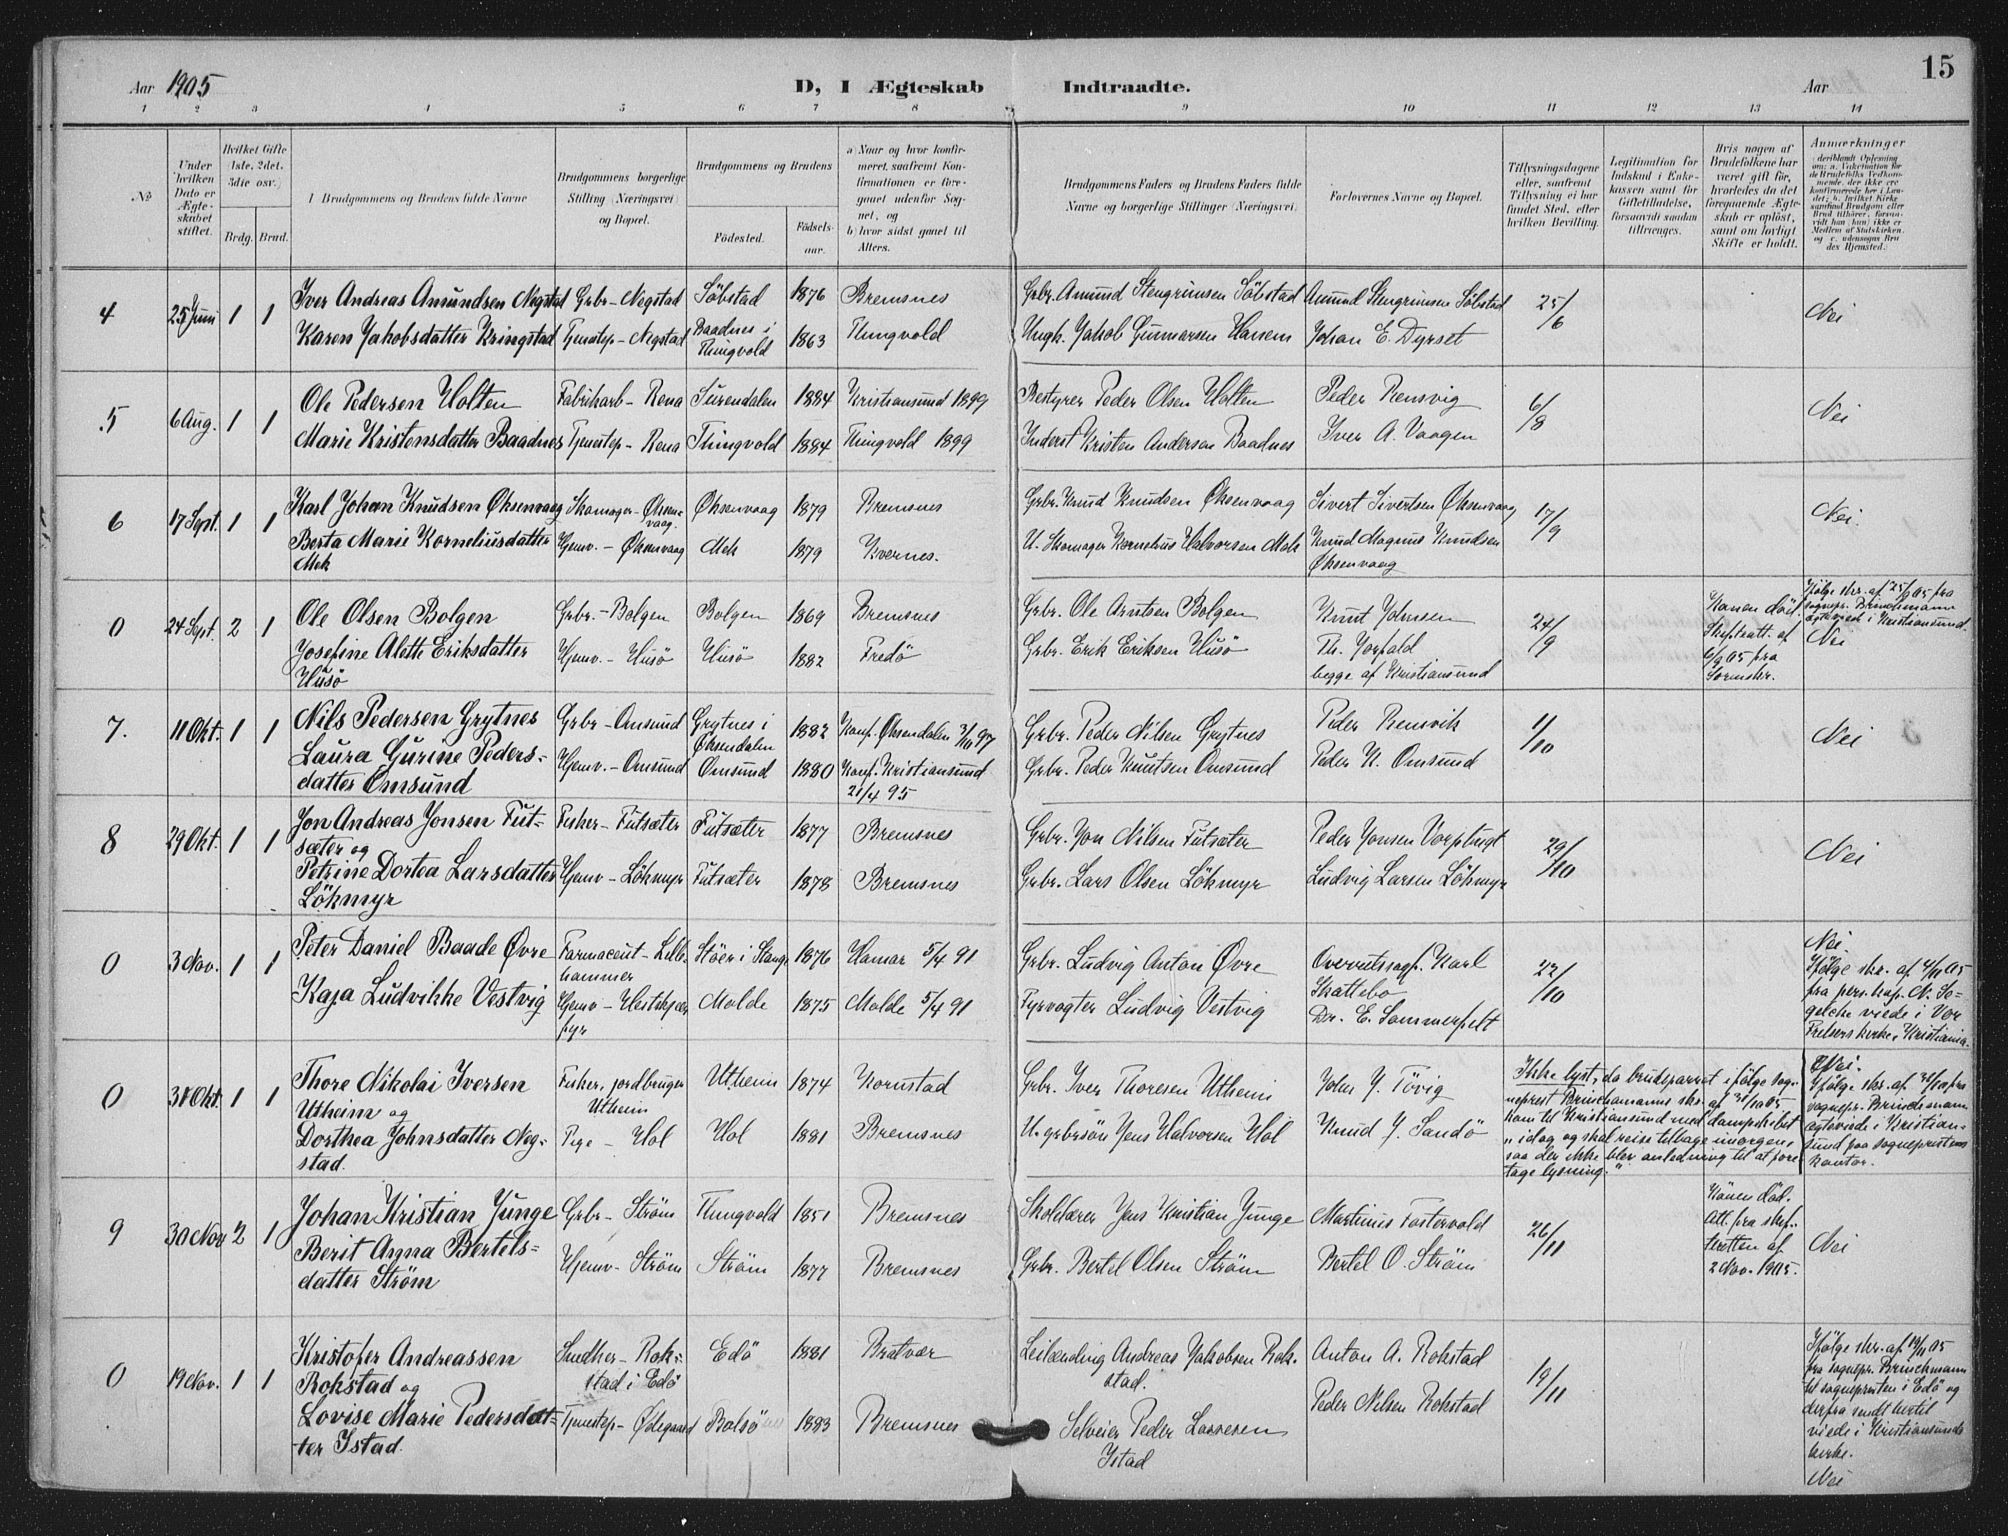 15
Aar 1905 D, I Ægteskab Indtraadte. Aar
1 2 3 4 5 6 7 8 9 10 11 12 13 14
No.
Under hvilken Dato er Ægteskabet stiftet.
Hvilket Gifte (1ste, 2det, 3die osv.)
Brdg. Brud.
1 Brudgommens og Brudens fulde Navne
Brudgommens borgerlige Stilling (Næringsvei) og Bopæl.
Brudgommens og Brudens
Fødested. Fødselsaar.
a) Naar og hvor konfirmeret, saafremt Konfirmationen er foregaaet udenfor Sognet, og
b) hvor sidst gaaet til Alters.
Brudgommens Faders og Brudens Faders fulde Navne og borgerlige Stillinger (Næringsvei)
Forlovernes Navne og Bopæl.
Tillysningsdagene eller, saafremt Tillysning ei har fundet Sted, efter hvilken Bevilling.
Legitimation for Indskud i Enkekassen samt for Giftetilladelse, forsaavidt saadan tiltrænges.
Hvis nogen af Brudefolkene har været gift før, hvorledes da det foregaaende Ægteskab er opløst, samt om lovligt Skifte er holdt.
Anmærkninger
4 25 Juni 1 1 Iver Andreas Amundsen Negstad Grbr - Negstad Søbstad 1876 Bremsnes Grbr. Amund Stengrimsen Søbstad Amund Stengrimsen Søbstad 25/6 Nei
Karen Jakobsdatter Kringstad Tjenestep - Negstad Baadnes i Thingvold 1863 Thingvold Ungk. Jakob Gunnarsen Hansem Johan E. Dyrset
5 6 Aug. 1 1 Ole Pedersen Holten Fabrikarb - Rena Surendalen 1884 Kristiansund 1899 Bestyrer Peder Olsen Holten Peder Rensvig 6/8 Nei
Marie Kristensdatter Baadnes Tjenestep - Rena Thingvold 1884 Thingvold 1899 Inderst Kristen Andersen Baadnes Iver A. Vaagen
6 17 Sept. 1 1 Karl Johan Knudsen Øksenvaag Skomager - Øksenvaag Øksenvaag 1879 Bremsnes Grbr. Knud Knudsen Øksenvaag Sivert Sivertsen Øksenvaag 17/9 Nei.
Berta Marie Korneliusdatter Hjemv. - Øksenvaag Mek 1879 Kvernes. U. Skomager Kornelius Halvorsen Mek Knud Magnus Knudsen
Mek Øksenvaag
0 24 Sept. 2 1 Ole Olsen Bolgen Grbr. - Bolgen Bolgen 1869 Bremsnes Grbr. Ole Arntsen Bolgen Knut Johnsen 24/9 Konen död.
Skiftatt. af
6/9 05 fra
Sorenskr.
Ifølge skr. af 25/9 05 fra
sognepr. Brinchmann
ægteviede i Kristiansund.
Nei
Josefine Aleth Eriksdatter Hjemv. - Husö Husö 1882 Fredö Grbr. Erik Eriksen Husö Th. Jorfald
Husö begge af Kristiansund
7. 11 Okt. 1 1 Nils Pedersen Grytnes Grbr - Omsund Grytnes i Øksendalen 1882 Konf. Øksendalen 3/10 97 Grbr. Peder Nilsen Grytnes Peder Rensvik 1/10 Nei
Laura Gurine Peders- Hjemv. - Omsund Omsund 1880 Konf. Kristiansund Grbr. Peder Knutsen Omsund Peder K. Omsund
datter Omsund 21/4 95
8 29 Okt. 1 1 Jon Andreas Jonsen Fut- Fisker - Futsæter Futsæter 1877 Bremsnes Grbr. Jon Nilsen Futsæter Peder Jonsen Vorpbugt 29/10 Nei
sæter og
Petrine Dortea Larsdatter Hjemv - Lökmyr Futsæter 1878 Bremsnes Grbr. Lars Olsen Lökmyr Ludvig Larsen Lökmyr
Lökmyr
0 3 Nov. 1 1 Peter Daniel Baade Øvre Farmaceut - Lillehammer Stöer i Stange 1876 Hamar 5/4 91 Grbr. Ludvig Anton Øvre Overretssagf. Karl Skattebo 22/10 Nei.
Ifølge skr. af 4/11 05
fra pers. kap. N. Sogelche
viede i Vor
Frelsers kirke, Kristiania.
Kaja Ludvikke Vestvig Hjemv - Hestskjær fyr Molde 1875 Molde 5/4 91 Fyrvogter Ludvig Vestvig Dr. E. Sommerfelt
0 31 Okt. 1 1 Thore Nikolai Iversen Fisker, jordbruger Utheim Utheim 1874 Kornstad Grbr. Iver Thoresen Utheim Johs J. Tövig
Utheim og
Dorthea Johnsdatter Neg- Pige - Hol Hol 1881 Bremsnes U. grbrsön Jens Halvorsen Hol Knud J. Sandö
stad.
Ikke lyst, da brudeparret ifølge sog-
neprest Brinchmanns skr. af 31/10 05
kom til Kristiansund med dampskibet
"idag og skal reise tilbage imorgen,
saa der ikke blev anledning til at fore-
tage lysning."
Nei.
Ifølge skr. af 31/10 fra
sognepr. Brinchmann
ægteviede i Kristian-
sund paa sogneprestens
kontor.
9 30 Nov 2 1 Johan Kristian Junge Grbr - Ström Thingvold 1851 Bremsnes Skolelærer Jens Kristian Junge Martinus Fostervold 26/11 Konen död.
Att. fra skif-
teretten af
2 Nov. 1905.
Nei
Berit Anna Bertels- Hjemv - Ström Ström 1877 Bremsnes Grbr. Bertel Olsen Ström Bertel O. Ström
datter Ström
0 19 Nov. 1 1 Kristofer Andreassen Snedker - Rok- Edö 1881 Bratvær Leilænding Andreas Jakobsen Rok- Anton A. Rokstad 19/11
Rokstad og stad i Edö stad.
Lovise Marie Pedersdat- Tjenestep - Ødegaard Bolsö 1883 Bremsnes Selveier Peder Lassesen Peder Nilsen Rokstad
ter Istad. Istad
Ifølge skr. af 19/11 05
fra sognepr. Brinchmann
til sognepresten i Edö og
derfra sendt hertil
viede i Kristiansunds
kirke.
Nei